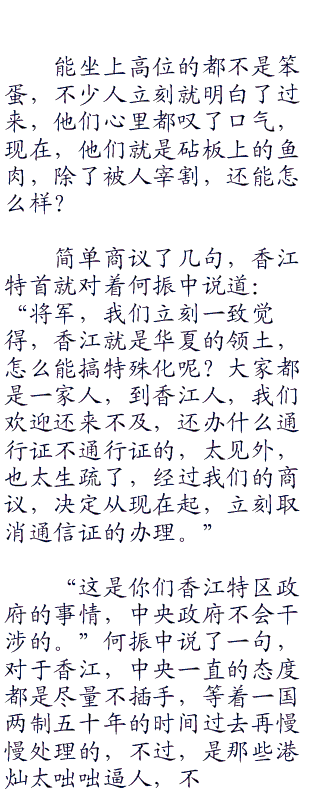 能坐上高位的都不是笨
蛋，不少人立刻就明白了过
来，他们心里都叹了口气，
现在，他们就是砧板上的鱼
肉，除了被人宰割，还能怎
么样？
简单商议了几句，香江
特首就对着何振中说道：
“将军，我们立刻一致觉
得，香江就是华夏的领土，
怎么能搞特殊化呢？大家都
是一家人，到香江人，我们
欢迎还来不及，还办什么通
行证不通行证的，太见外，
也太生疏了，经过我们的商
议，决定从现在起，立刻取
消通信证的办理。”
“这是你们香江特区政
府的事情，中央政府不会干
涉的。”何振中说了一句，
对于香江，中央一直的态度
都是尽量不插手，等着一国
两制五十年的时间过去再慢
慢处理的，不过，是那些港
灿太咄咄逼人，不